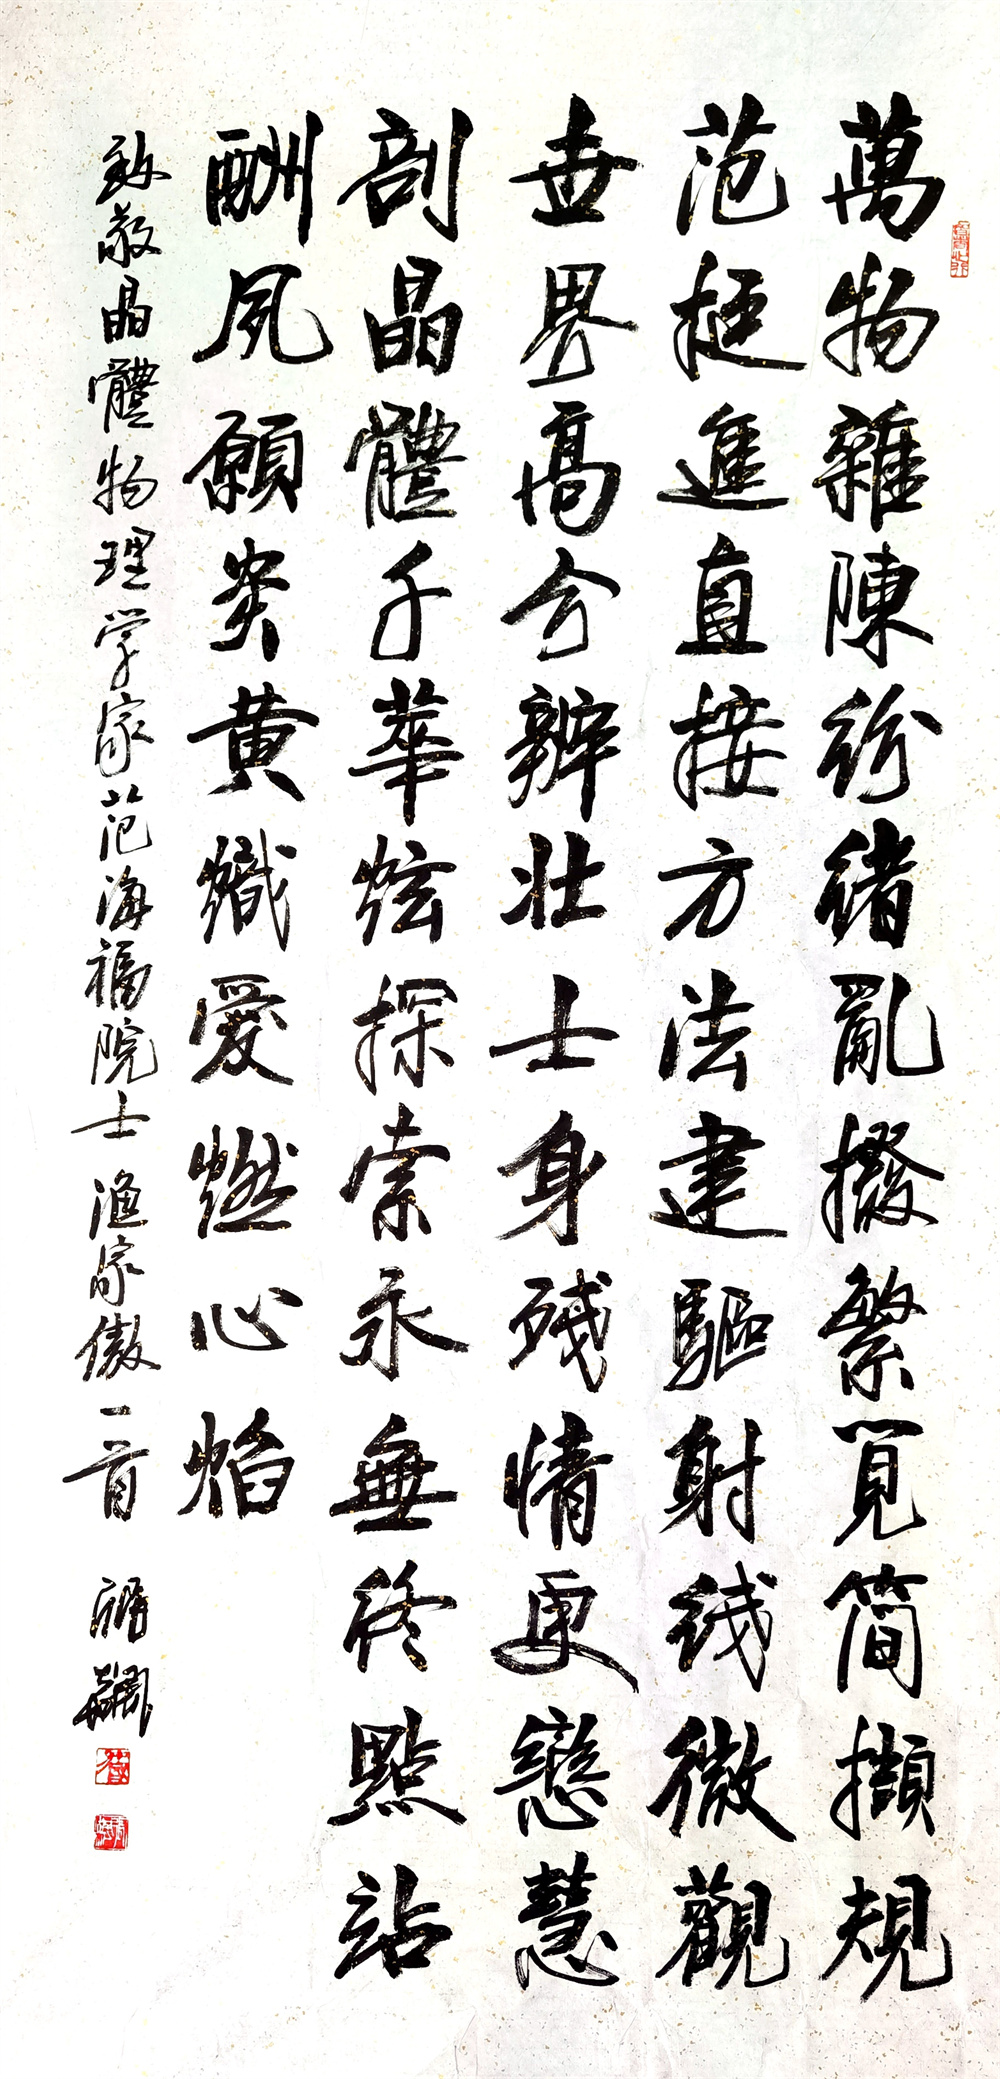 萬物雜陳紛緒亂掇繁見简擷規
范挺進直接方法建驅射线微觀
世界高今辨壮士身残情更戀慧
剖晶體千華炫探索永無终點站
酬夙願炎黄熾愛燃心焰
致敬晶體物理学家范海福院士 漁家傲一首